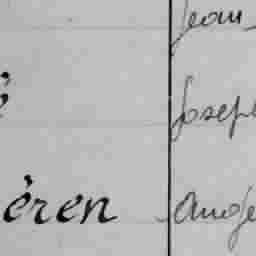 Jean
é Joseph
èren Ange